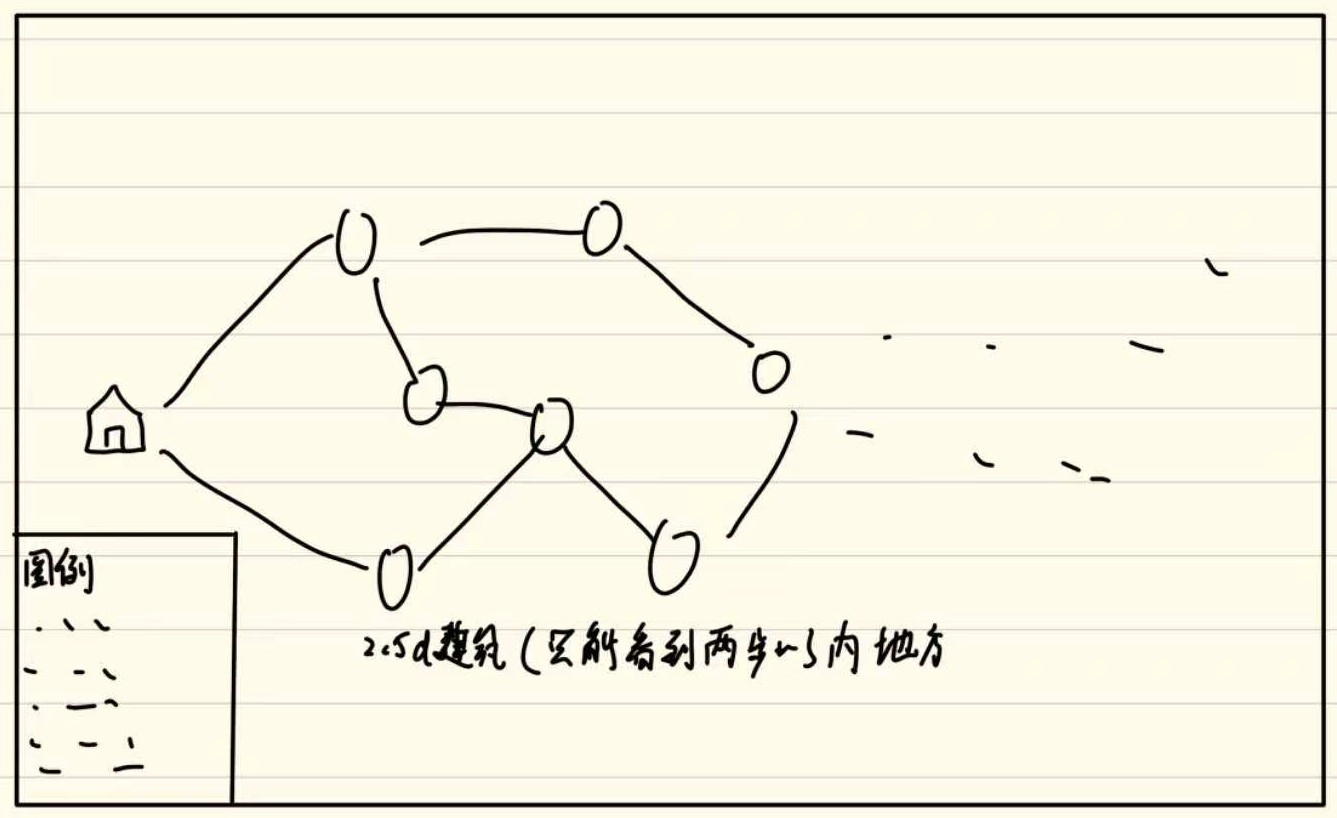 图例
2.5d建筑(只能看到两步以内地方